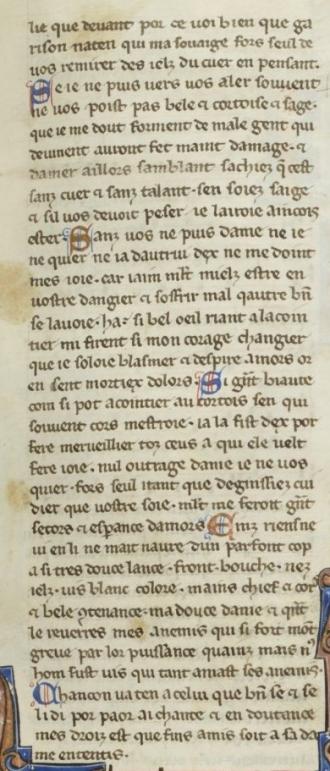 lie que deuant por ce voi bien que ga
rison naten qui ma souaige fors seul de
uos remirer des ielz du cuer en pensant.
Se ie ne puis uers uos aler souuent
ne uos poist pas bele ⁊ cortoise ⁊ sage.
que ie me dout forment de male gent qui
deuinent auront fet maint damage. ⁊
damer aillors samblant sachiez q̃ cest
sanz cuer ⁊ sanz talant. sen soiez saige
⁊ sil uos deuoit peser ie lauroie aincois
oster. Sanz uos ne puis dame ne ie
ne quier ne ia dautrui dex ne me doint
mes ioie. car iaim mlt̃ mielz estre en
uostre dangier ⁊ soffrir mal qautre bñ
se lauoie. ha. si bel oeil riant a lacoin
tier mi firent si mon corage changier
que ie soloie blasmer ⁊ despire amors or
en sent mortiex dolors. Si gñt biaute
com si pot acointier au cortois sen qui
souuent cors mestroie. ia la fist dex por
fere merueillier toz ceus a qui ele uelt
fere ioie. nul outrage dame ie ne uos
quier. fors seul itant que deginssiez cui
dier que uostre soie. mlt̃ me feroit gñt
secors ⁊ esp̃ance damors Einz riens ne
ui en li ne mait naure dun parfont cop
a si tres douce lance. front. bouche. nez
ielz. uis blanc colore. mains chief ⁊ cors
⁊ bele ꝯtenance. ma douce dame ⁊ qñt
le reuerres mes anemis qui si fort mõt
greue par lor puissance quainz mais nꝰ
hom fust uis qui tant amast ses anemis.
Chancon ua ten a celui que bñ se ⁊ se
li di por paor ai chante ⁊ en doutance
mes droiz est que fins amis soit a sa da
me ententis.